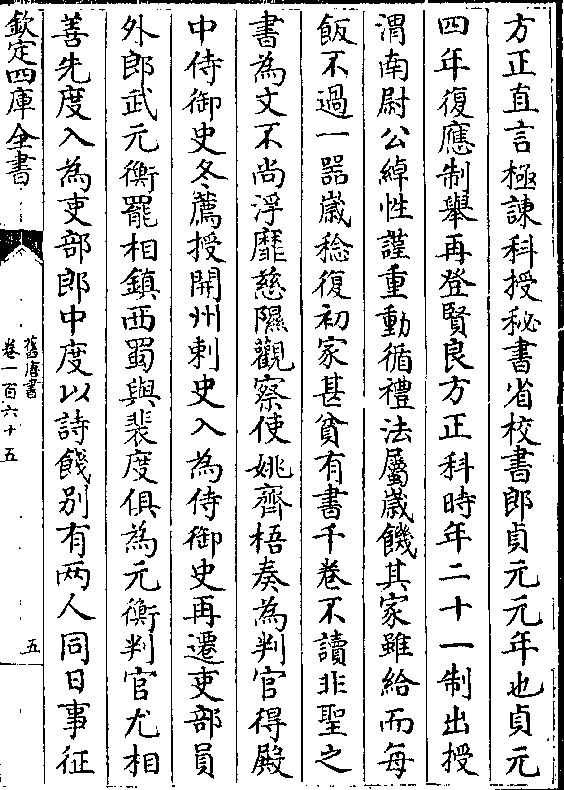 方正直言極諫科授秘書省校書郎貞元元年也貞元
四年復應制舉再登賢良方正科時年二十一制出授
渭南尉公綽性謹重動循禮法屬歲饑其家雖給而每
飯不過一器歲稔復初家甚貧有書千卷不讀非聖之
書為文不尚浮靡慈隰觀察使姚齊梧奏為判官得殿
中侍御史冬薦授開州刺史入為侍御史再遷吏部員
外郎武元衡罷相鎮西蜀與裴度俱為元衡判官尤相
善先度入為吏部郎中度以詩餞別有兩人同日事征
欽定四庫全書
舊唐書
卷一百六十五
五